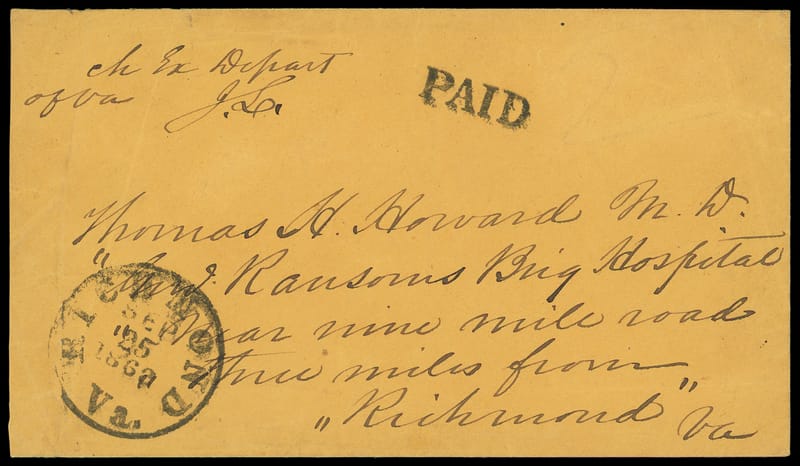 ch Ex Depart
of va J.L.
PAID
Thomas H. Howard M. D.
Ransoms Brig Hospital
near nine mile road
three miles from
„Richmond" va
RICHMOND
SEP
25
186
Va.